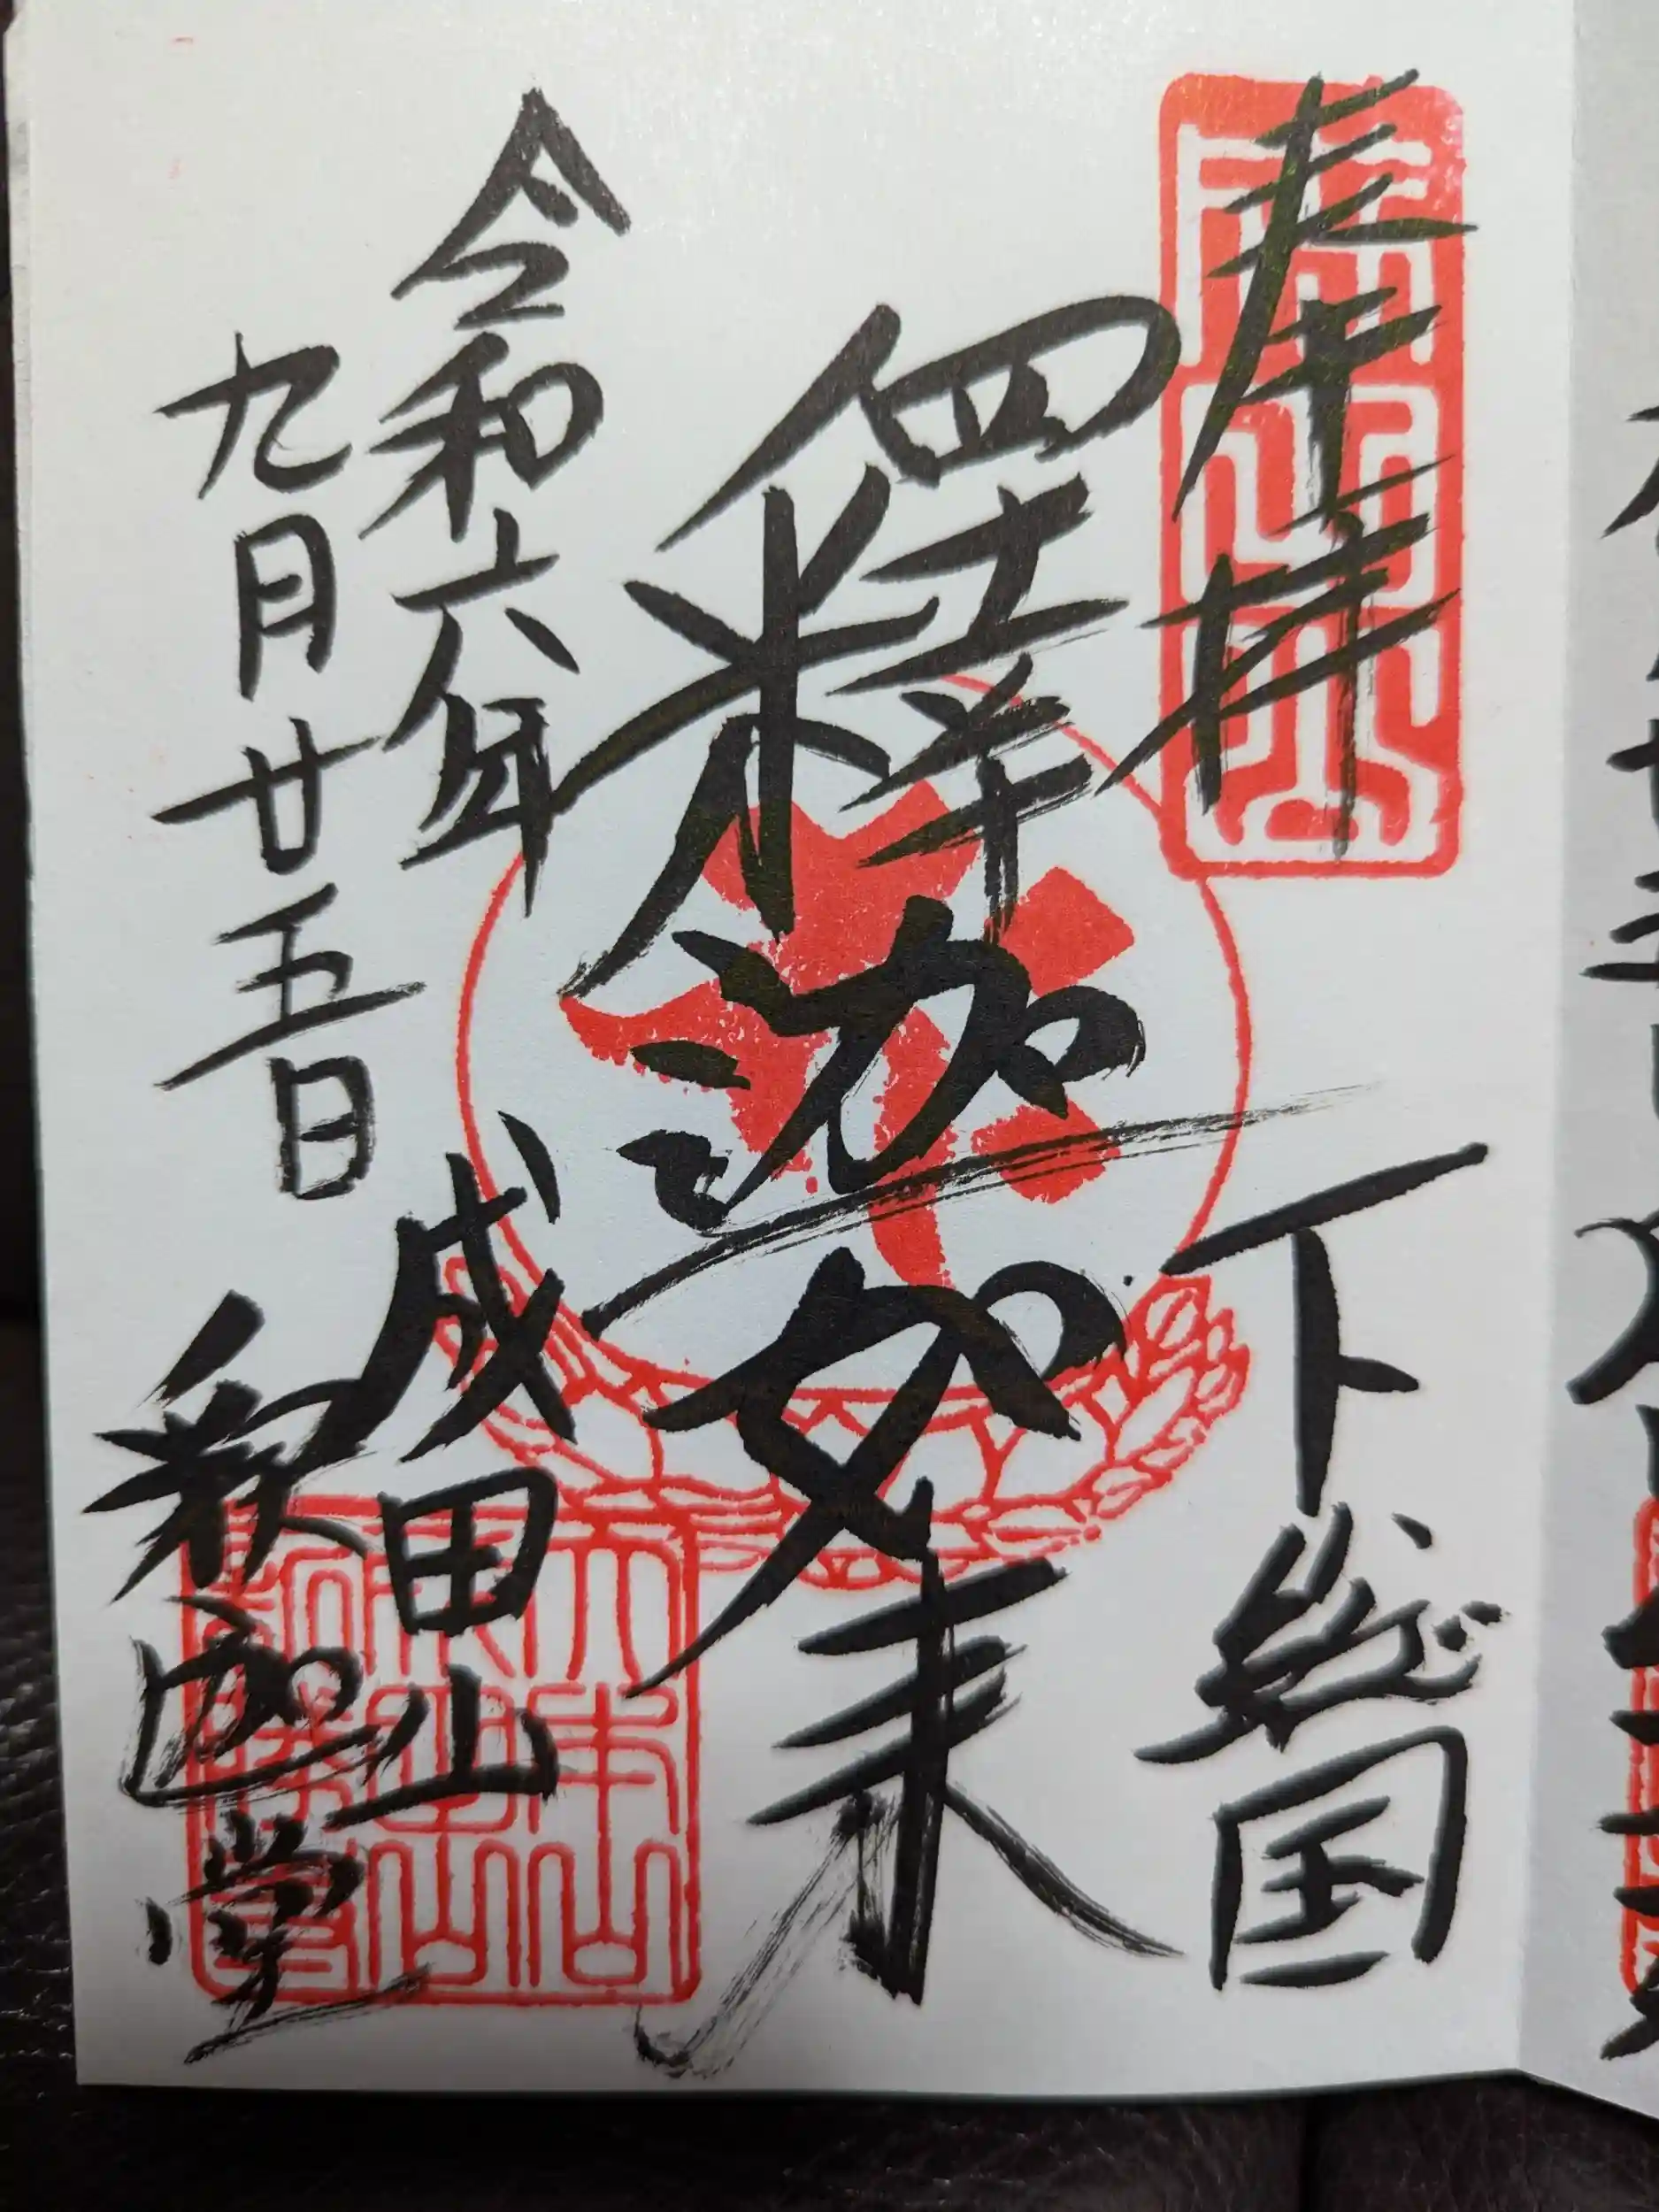 奉拝
下総国
釋迦如来
令和六年
九月廿五日
成田山
釈迦堂